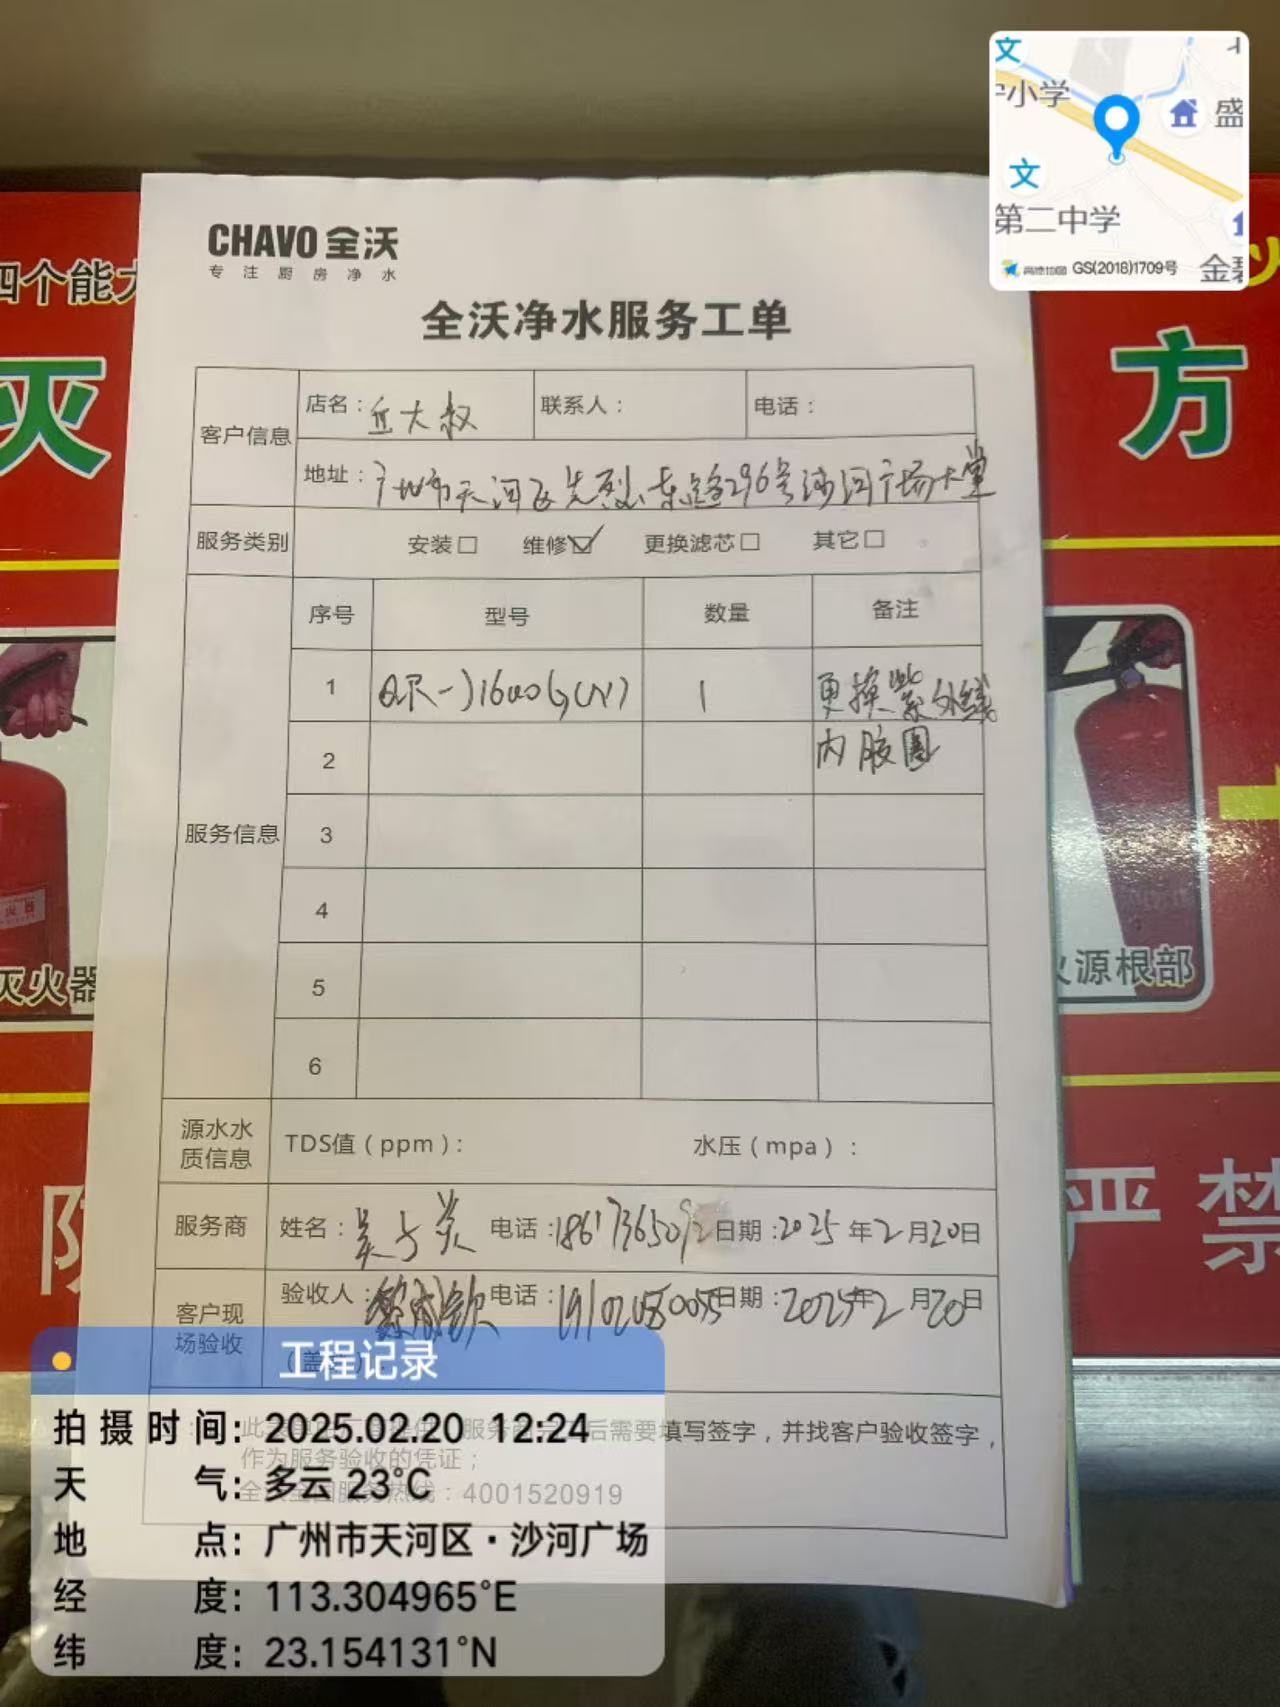 文
宁小学
盛
文
第二中学
高德地图 GS(2018)1709号
金碧
四个能力
灭
方
CHAVO 全沃
专注厨房净水
全沃净水服务工单
客户信息
店名：丘大叔
联系人：
电话：
地址：广州市天河区先烈东路296号沙河广场大堂
服务类别
安装□ 维修☑ 更换滤芯□ 其它□
服务信息
序号 型号 数量 备注
1 1 更换紫外线
2 内胶圈
3
4
5
6
灭火器
火源根部
源水水质信息
TDS值（ppm）：
水压（mpa）：
服务商
姓名： 电话： 日期：2025年2月20日
客户现场验收
验收人： 电话： 日期：2025年2月20日
防
严禁
服务商完工后需要填写签字，并找客户验收签字，
作为服务验收的凭证；
全沃全国服务热线：4001520919
工程记录
拍摄时间：2025.02.20 12:24
天气：多云 23°C
地点：广州市天河区·沙河广场
经度：113.304965°E
纬度：23.154131°N